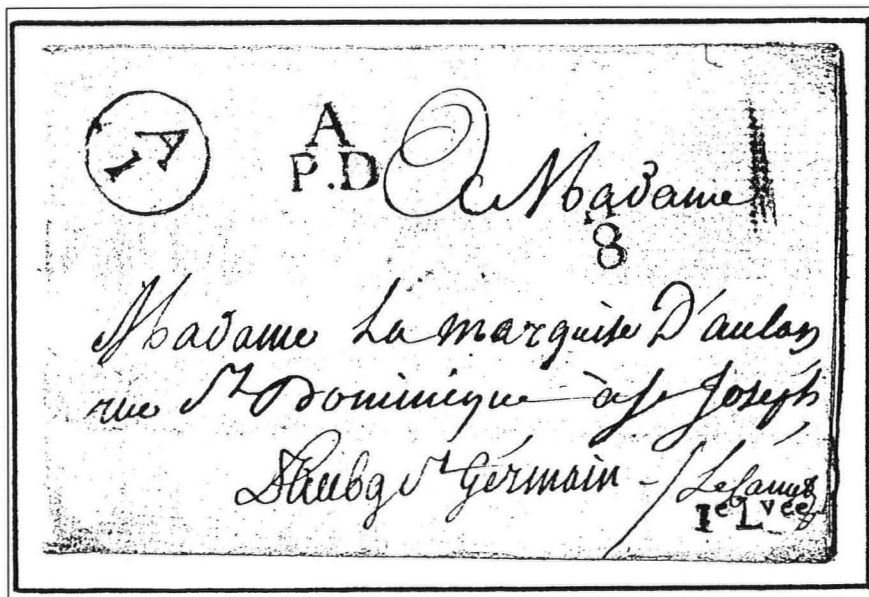 A
I
A
P.D
A Madame
8
Madame La marquise D'aulan
rue St Dominique à St Joseph
faubg St Germain
Ie Lvée